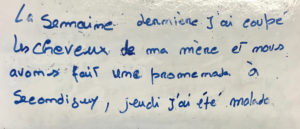 La semaine dernière j'ai coupé
les cheveux de ma mère et nous
avons fait une promenade à
Secondigny, jeudi j'ai été malade